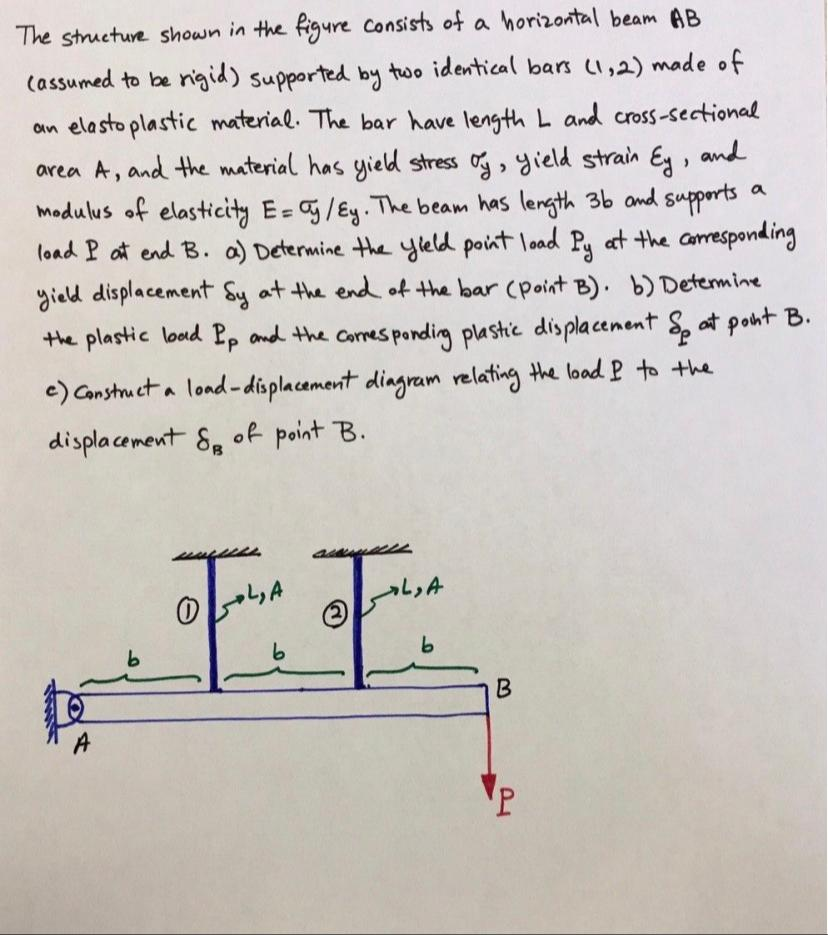 The structure shown in the figure consists of a horizontal beam AB
(assumed to be rigid) supported by two identical bars (1,2) made of
an elastoplastic material. The bar have length L and cross-sectional
area A, and the material has yield stress σy, yield strain εy, and
modulus of elasticity E = σy/εy. The beam has length 3b and supports a
load P at end B. a) Determine the yield point load Py at the corresponding
yield displacement δy at the end of the bar (point B). b) Determine
the plastic load Pp and the corresponding plastic displacement δp at point B.
c) Construct a load-displacement diagram relating the load P to the
displacement δB of point B.
① L, A ② L, A
b b b
B
A
P